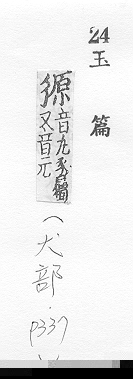 24
玉篇
獂音丸豕屬
又音元
(犬部·P337)